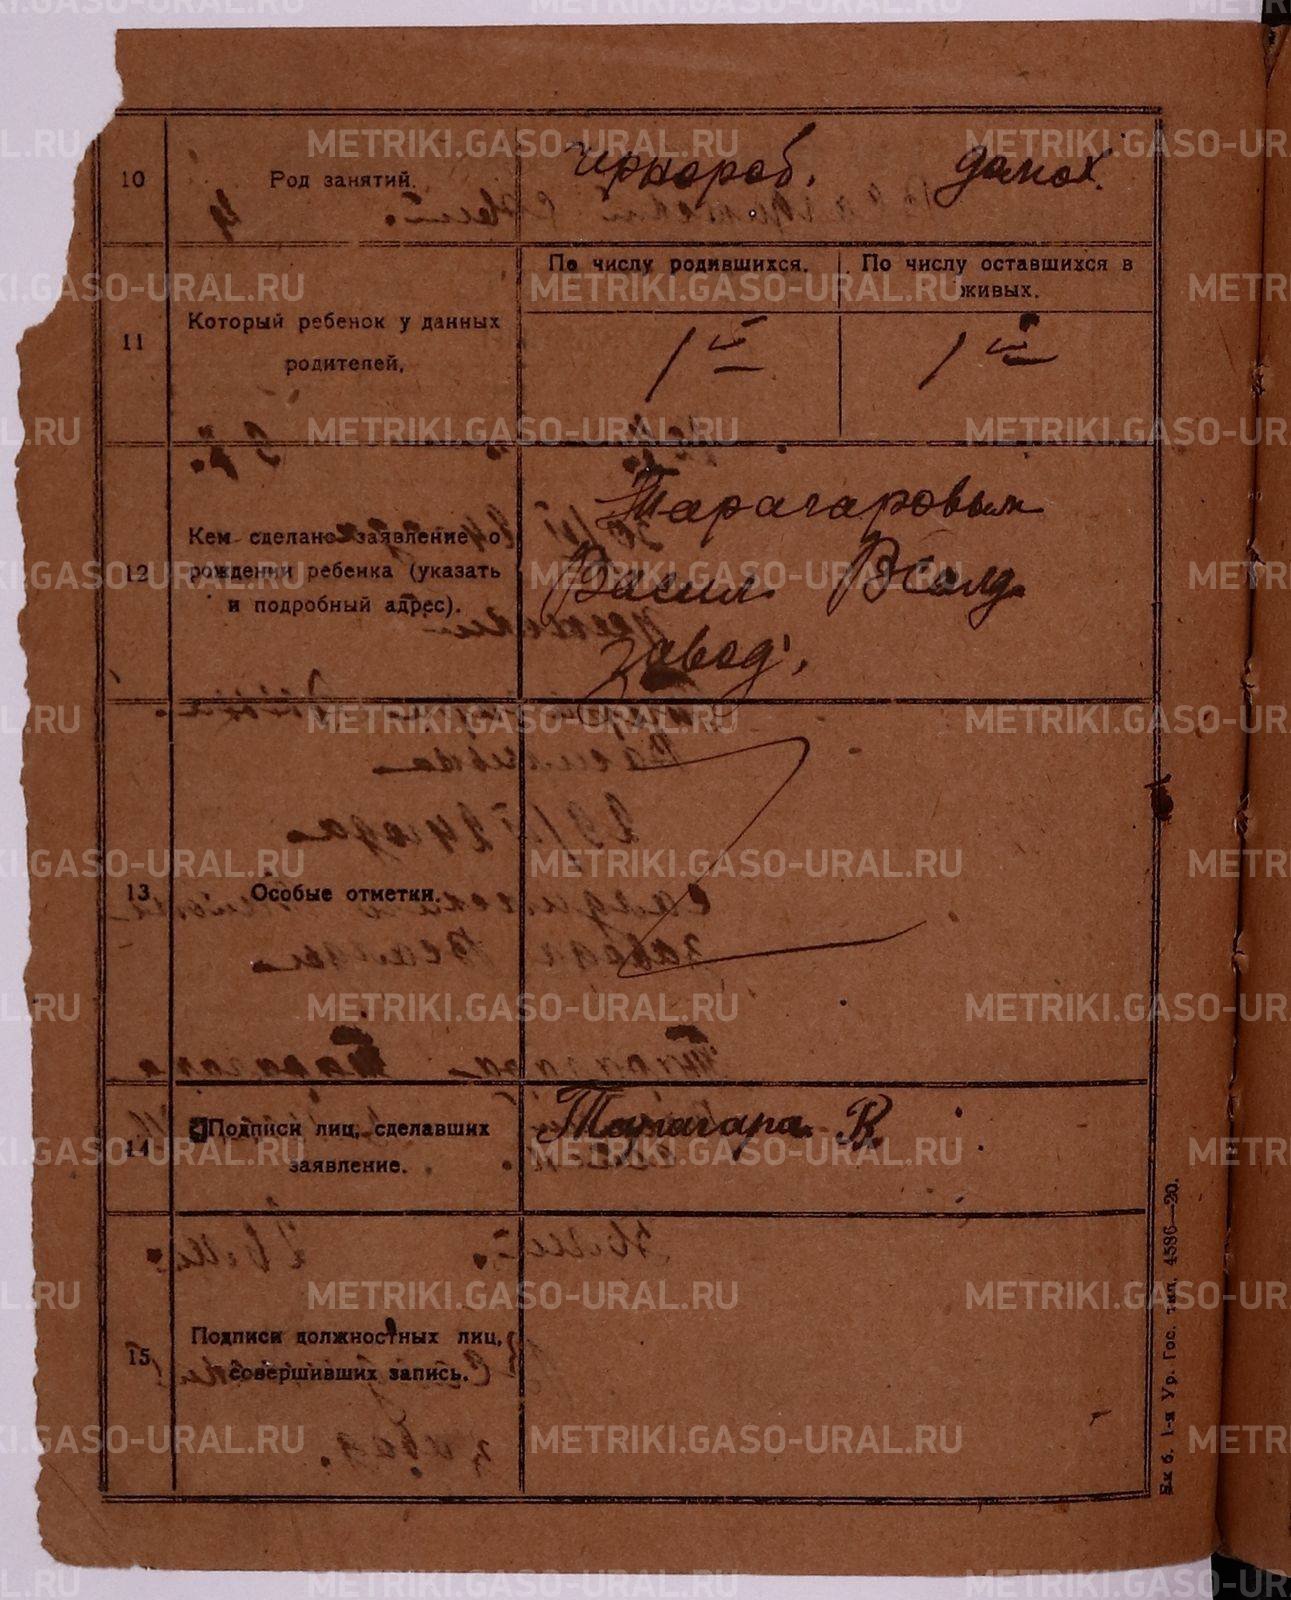 10 Род занятий. чернораб. домох.
По числу родившихся. По числу оставшихся в
живых.
11 Который ребенок у данных
родителей,
1й 1й
12 Кем сделано заявление о
рождении ребенка (указать
и подробный адрес).
Тарагаровым
Васил. ВСалд.
завод.
13 Особые отметки.
14 Подписи лиц, сделавших
заявление.
Тарагара В.
15 Подписи должностных лиц,
совершивших запись.
Ек б. 1-я Ур. Гос. тип. 4586—20.
METRIKI.GASO-URAL.RU